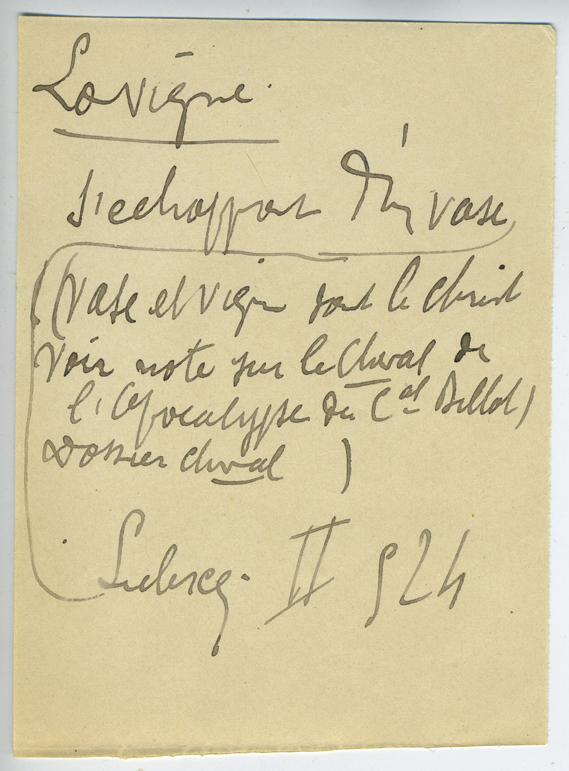 La vigne.
s'echappant d'un vase
(vase et vigne sont le Christ
voir note sur le cheval de
l'Apocalypse du Cal Billot)
Dossier cheval )
Leclercq. II 524